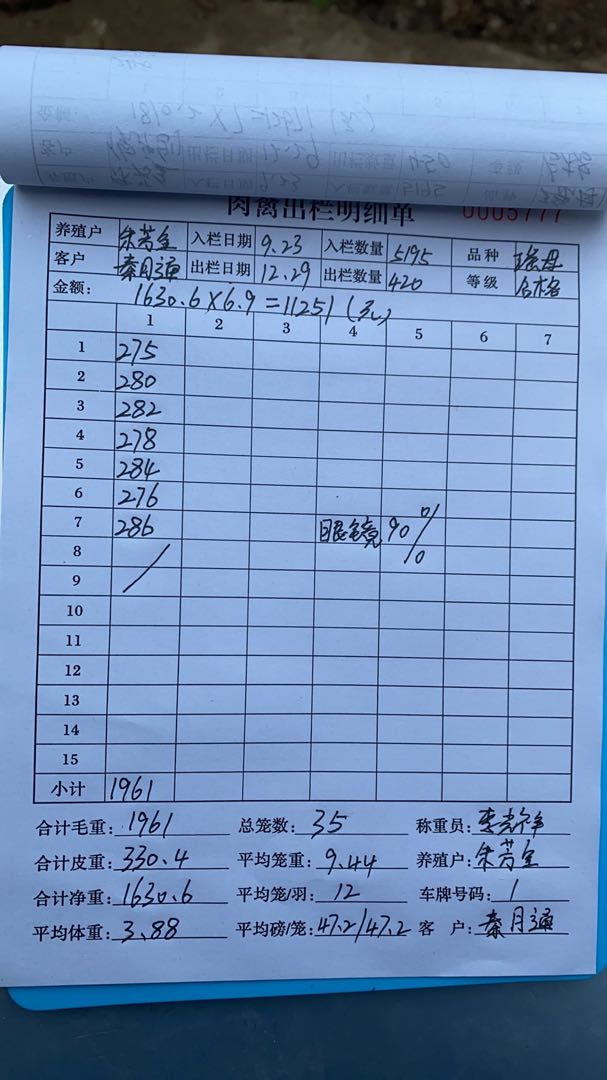 肉禽出栏明细单 0005777
养殖户 朱芳全 入栏日期 9.23 入栏数量 5195 品种
客户 秦月通 出栏日期 12.29 出栏数量 420 等级 合格
金额: 1630.6×6.9=11251(元)
1 2 3 4 5 6 7
1 275
2 280
3 282
4 278
5 284
6 276
7 286 眼镜 90%
8
9
10
11
12
13
14
15
小计 1961
合计毛重: 1961 总笼数: 35 称重员:
合计皮重: 330.4 平均笼重: 9.44 养殖户: 朱芳全
合计净重: 1630.6 平均笼/羽: 12 车牌号码: 1
平均体重: 3.88 平均磅/笼: 47.2/47.2 客户: 秦月通